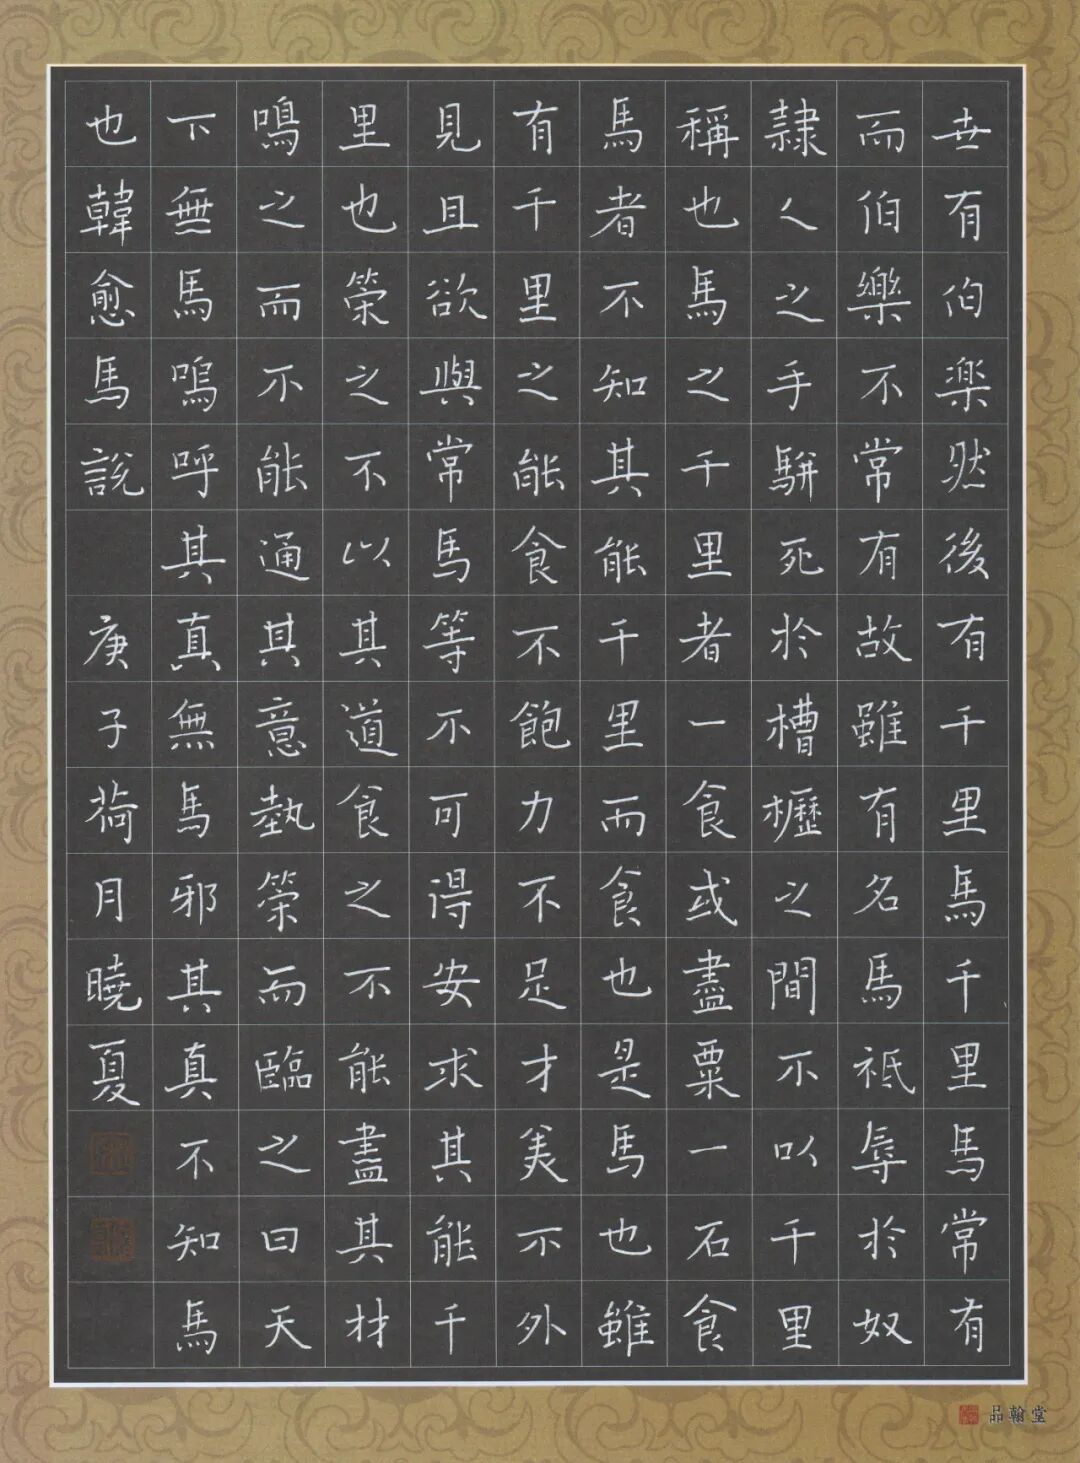 世有伯樂然後有千里馬千里馬常有
而伯樂不常有故雖有名馬祗辱於奴
隸人之手駢死於槽櫪之間不以千里
稱也馬之千里者一食或盡粟一石食
馬者不知其能千里而食也是馬也雖
有千里之能食不飽力不足才美不外
見且欲與常馬等不可得安求其能千
里也策之不以其道食之不能盡其材
鳴之而不能通其意執策而臨之曰天
下無馬嗚呼其真無馬邪其真不知馬
也韓愈馬說 庚子荷月曉夏
品翰堂